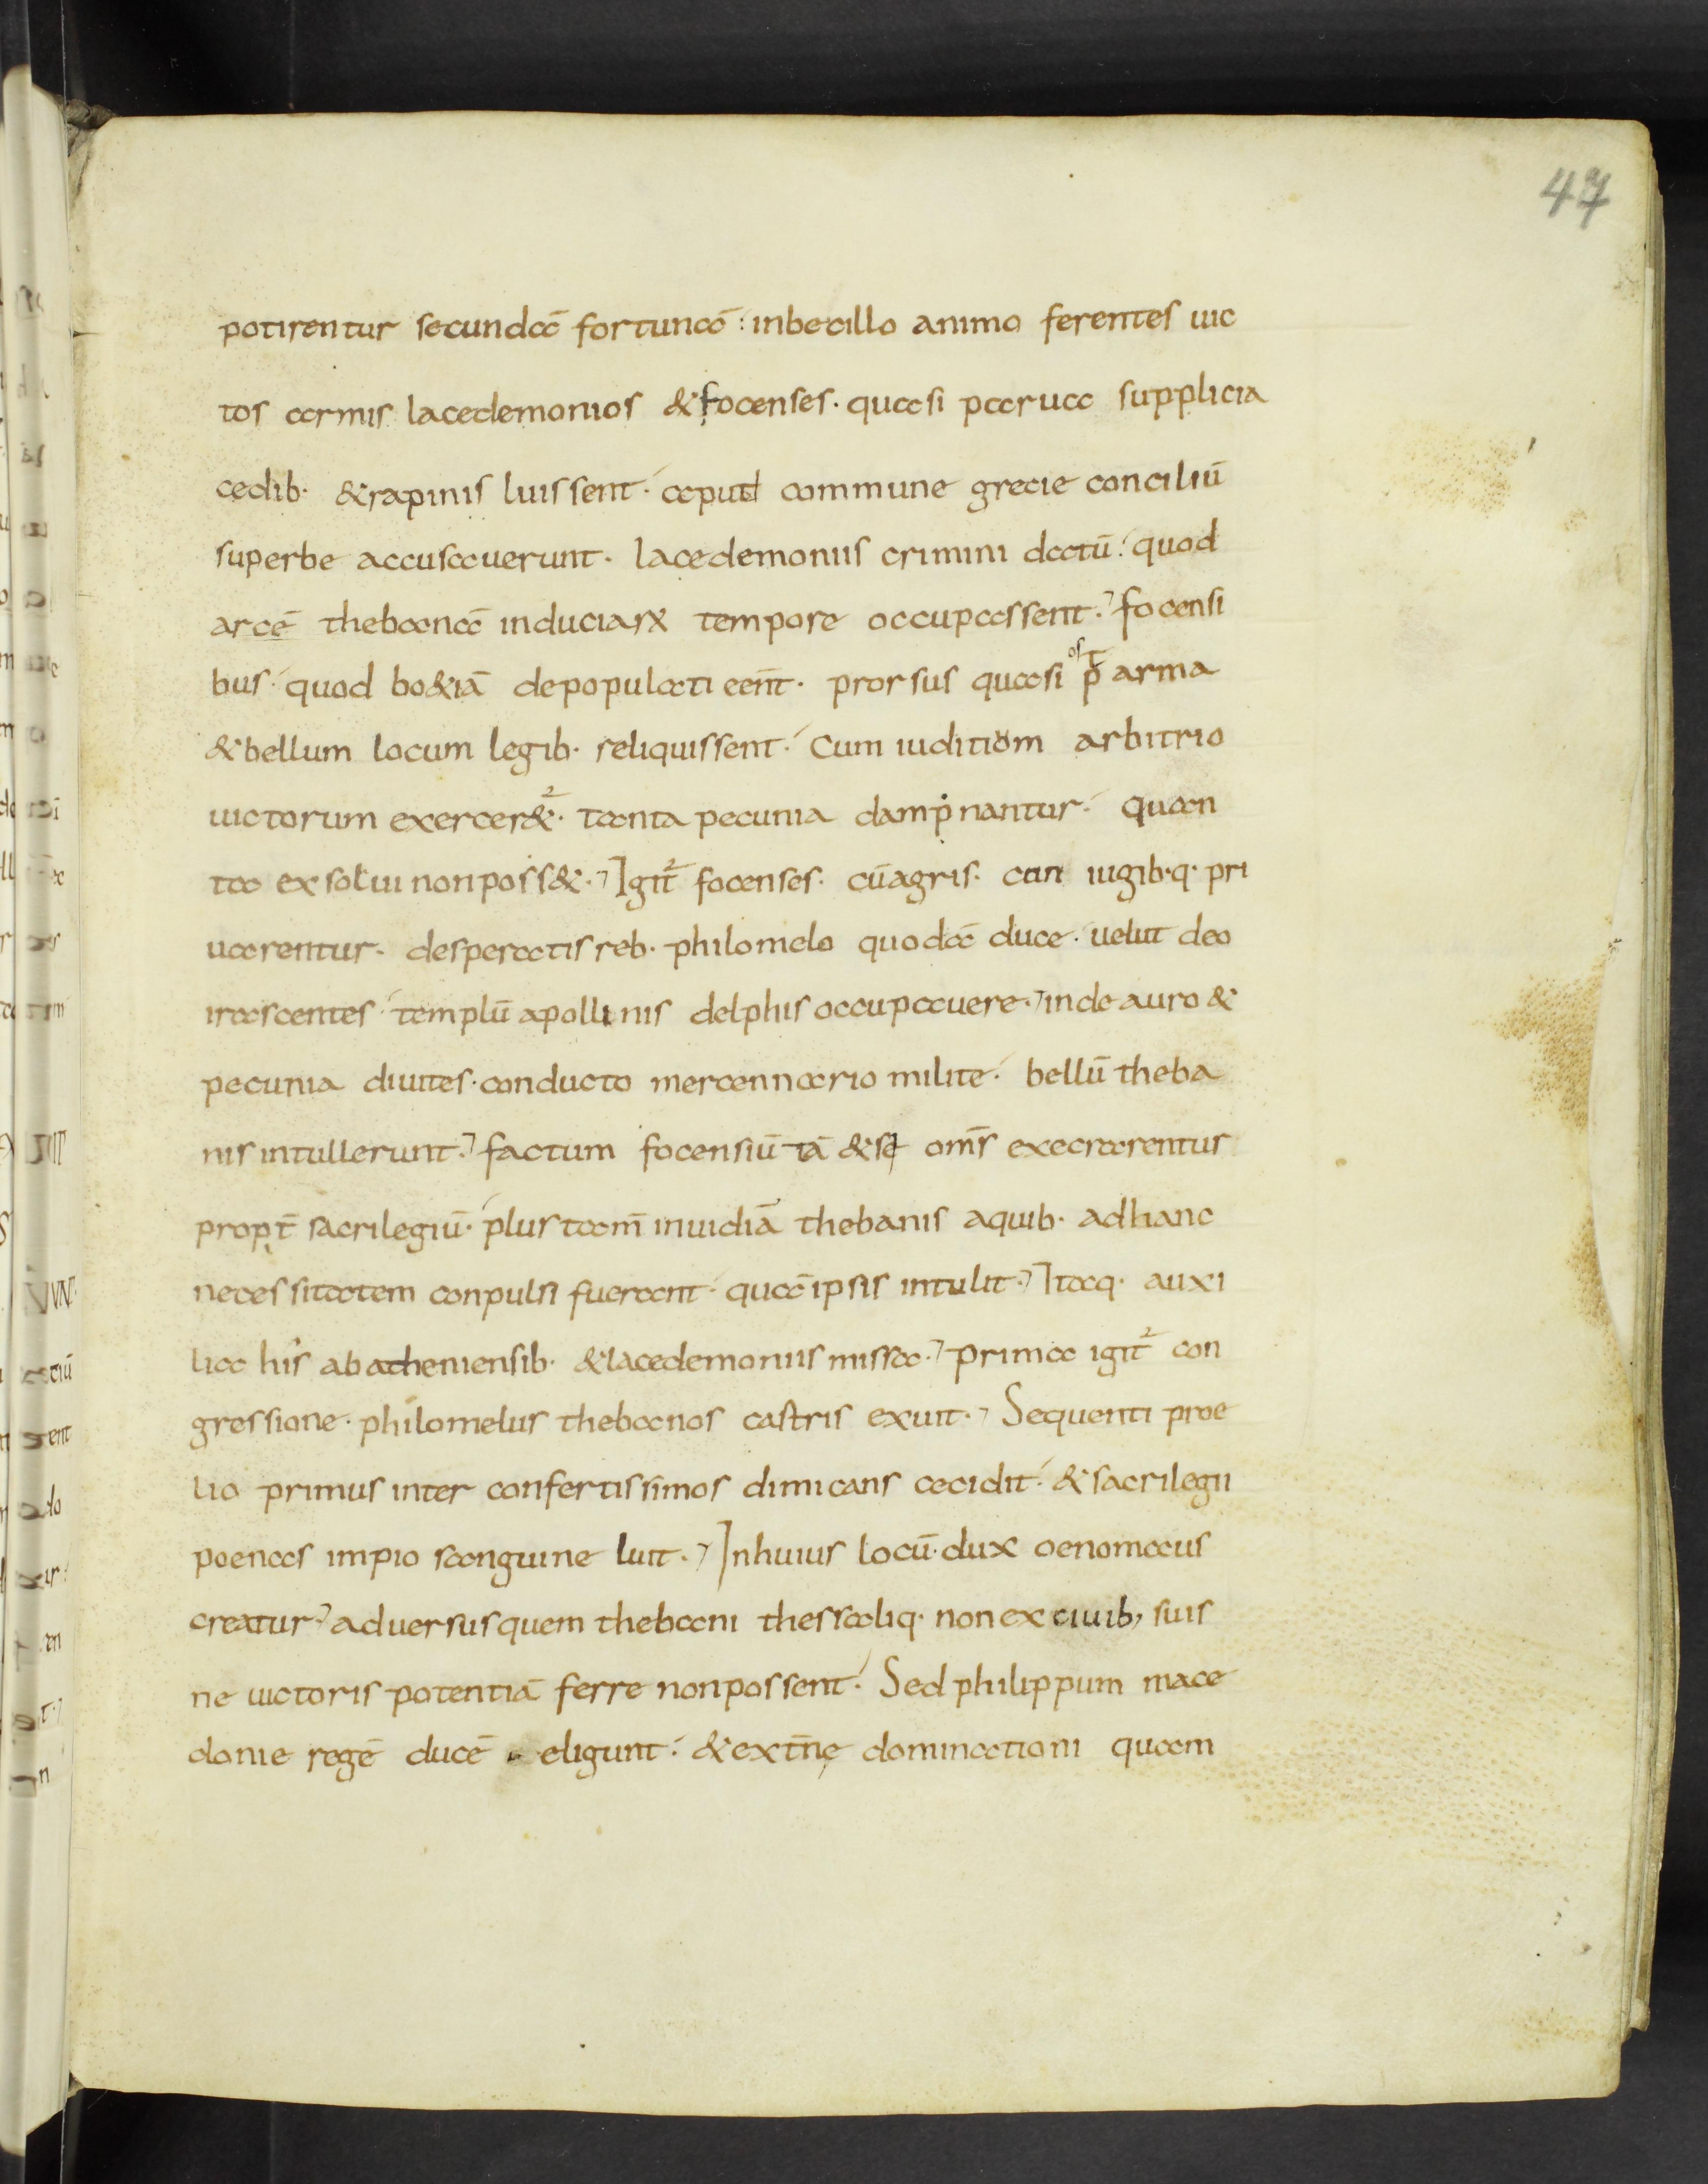 47
potirentur secundā fortunā: inbecillo animo ferentes uic
tos armis lacedemonios & focenses· quasi parua supplicia
cedib· & rapinis luissent· aput commune grecie conciliū
superbe accusauerunt· lacedemoniis crimini datū: quod
arcē thebanā induciarꝝ tempore occupassent· focensi
bus· quod bo&iā depopulati eēnt· prorsus quasi post arma
& bellum locum legib· reliquissent· Cum iuditium arbitrio
uictorum exercer&ur· tanta pecunia dampnantur· quan
ta exsolui non poss&· Igit² focenses· cū agris· cun iugib·q· pri
uarentur· desperatis reb· philomelo quodā duce· uelut deo
irascentes· templū apollinis delphis occupauere· inde auro &
pecunia diuites· conducto mercennario milite· bellū theba
nis intullerunt· factum focensiū tā &si om̄s execrarentur
propt̄ sacrilegiū· plus tam̄ inuidiā thebanis a quib· ad hanc
necessitatem conpulsi fuerant· quā ipsis intulit· Itaq· auxi
lia his ab atheniensib· & lacedemoniis missa· prima igit² con
gressione· philomelus thebanos castris exuit· Sequenti proe
lio primus inter confertissimos dimicans cecidit· & sacrilegii
poenas impio sanguine luit· In huius locū· dux oenomaus
creatur· aduersus quem thebani thessaliq· non ex ciuib; suis
ne uictoris potentiā ferre non possent· Sed philippum mace
donie regē ducē eligunt· & ext̄nę dominationi quam